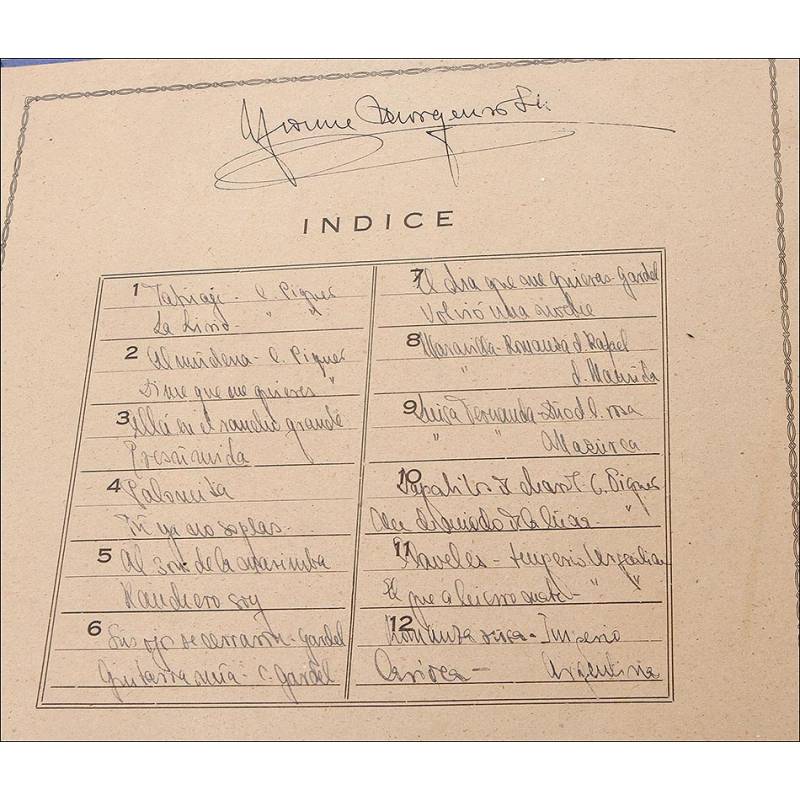 INDICE
1 Tatuaje - C. Piquer
La Lirio - " "
2 Almudena - C. Piquer
Dime que me quieres "
3 Allá en el rancho grande
Presumida
4 Palomita
Tú ya no soplas -
5 Al son de la marimba
Ranchero soy
6 Sus ojos se cerraron - Gardel
Guitarra mía - C. Gardel
7 El dia que me quieras - Gardel
Volvió una noche
8 Maravilla - Romanza d Rafael
" d. Matilde
9 Luisa Fernanda - 
" " Mazurca
10 - C. Piquer
"
11 Claveles - Imperio Argentina
El que a hierro mata - " "
12 Romanza - Imperio
Carioca - Argentina